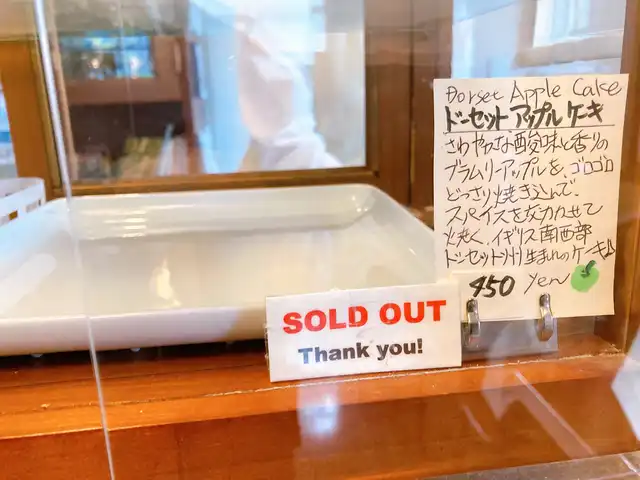 Dorset Apple Cake
ドーセットアップルケーキ
さわやかな酸味と香りの
ブラムリーアップルを、ゴロゴロ
どっさり焼き込んで、
スパイスを効かせて
焼く、イギリス南西部
ドーセット州生まれのケーキ♪
450 yen
SOLD OUT
Thank you!